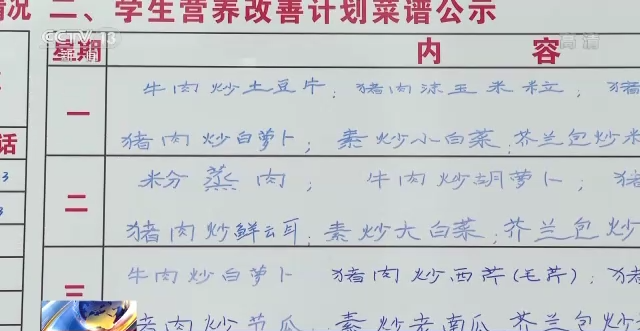 情况 二、学生营养改善计划菜谱公示
CCTV 13 新闻
高清
星期 内容
一 牛肉炒土豆片；猪肉沫玉米粒；猪
猪肉炒白萝卜；素炒小白菜；芥兰包炒
话
二 粉蒸肉；牛肉炒胡萝卜；
猪肉炒鲜云耳；素炒大白菜；芥兰包炒
三 牛肉炒白萝卜 猪肉炒西芹(毛芹)；猪
猪肉炒节瓜；素炒老南瓜；芥兰包炒